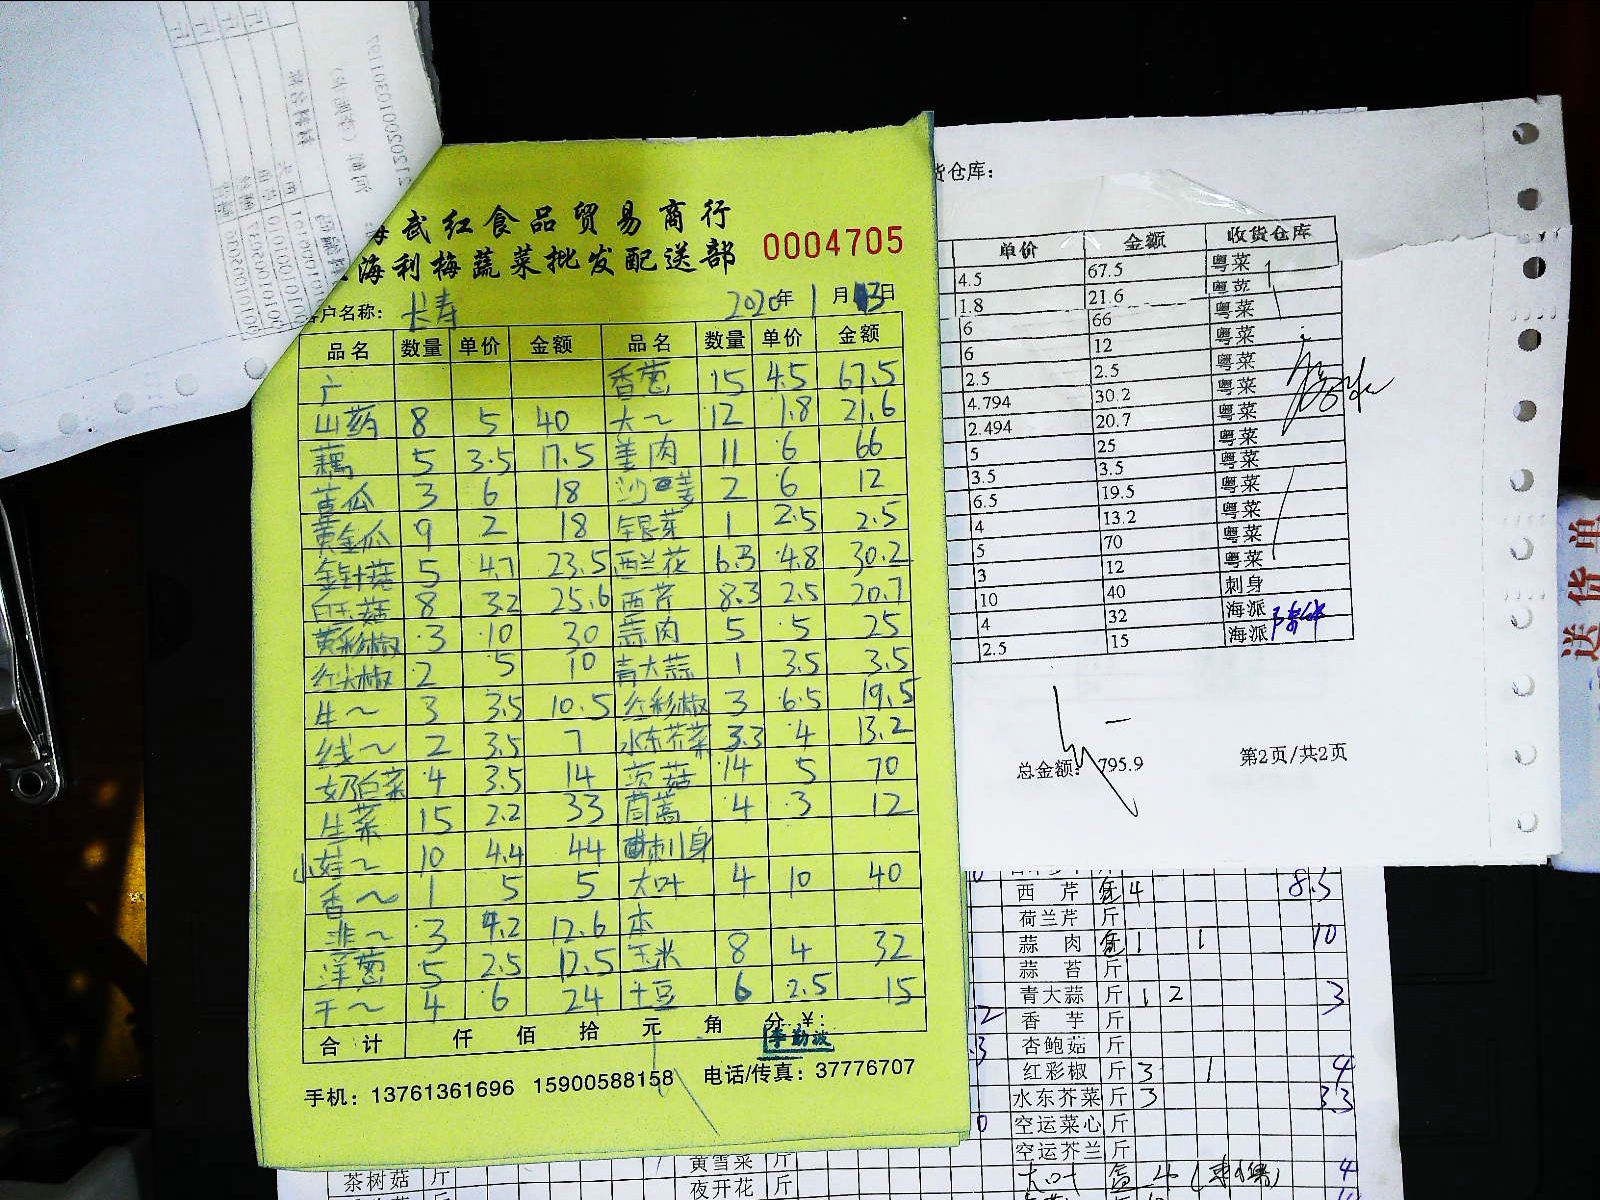 武红食品贸易商行
海利梅蔬菜批发配送部
0004705
客户名称： 长寿 2020年 1月 13日
品名 数量 单价 金额 品名 数量 单价 金额
广 香葱 15 4.5 67.5
山药 8 5 40 大～ 12 1.8 21.6
藕 5 3.5 17.5 姜肉 11 6 66
苦瓜 3 6 18 沙姜 2 6 12
黄金瓜 9 2 18 银芽 1 2.5 2.5
金针菇 5 4.7 23.5 西兰花 6.3 4.8 30.2
白玉菇 8 3.2 25.6 西芹 8.3 2.5 20.7
黄彩椒 3 10 30 蒜肉 5 5 25
红尖椒 2 5 10 青大蒜 1 3.5 3.5
牛～ 3 3.5 10.5 红彩椒 3 6.5 19.5
线～ 2 3.5 7 水东芥菜 3.3 4 13.2
奶白菜 4 3.5 14 茨菇 14 5 70
生菜 15 2.2 33 茼蒿 4 3 12
小娃～ 10 4.4 44 刺身
香～ 1 5 5 大叶 4 10 40
韭～ 3 4.2 12.6 本
洋葱 5 2.5 12.5 玉米 8 4 32
干～ 4 6 24 土豆 6 2.5 15
合计 仟 佰 拾 元 角 分 ¥:
李勤波
手机：13761361696 15900588158 电话/传真：37776707
货仓库：
单价 金额 收货仓库
4.5 67.5 粤菜
1.8 21.6 粤菜
6 66 粤菜
6 12 粤菜
2.5 2.5 粤菜
4.794 30.2 粤菜
2.494 20.7 粤菜
5 25 粤菜
3.5 3.5 粤菜
6.5 19.5 粤菜
4 13.2 粤菜
5 70 粤菜
3 12 粤菜
10 40 刺身
4 32 海派
2.5 15 海派
总金额：795.9 第2页/共2页
送货单
西芹 4 8.3
荷兰芹 斤
蒜肉 1 1 10
蒜苔 斤
青大蒜 斤 1 2 3
香芋 斤
杏鲍菇 斤
红彩椒 斤 3 1 4
水东芥菜 斤 3 3.3
空运菜心 斤
空运芥兰 斤
大叶 4
茶树菇 斤 黄雪菜 斤
夜开花 斤